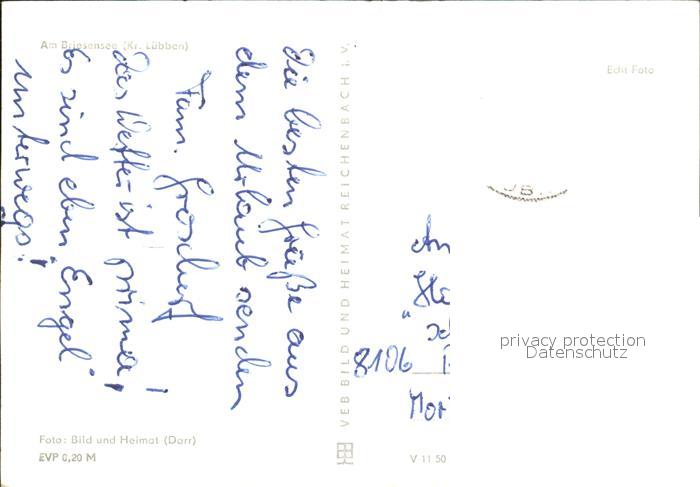 Am Briesensee (Kr. Lübben)
Die besten Grüße aus
dem Urlaub senden
Fam.
das Wetter ist prima,
es sind eben „Engel"
unterwegs!
Foto: Bild und Heimat (Darr)
EVP 0,20 M
VEB BILD UND HEIMAT REICHENBACH i. V.
Echt Foto
An
8106
V 11 50
privacy protection
Datenschutz